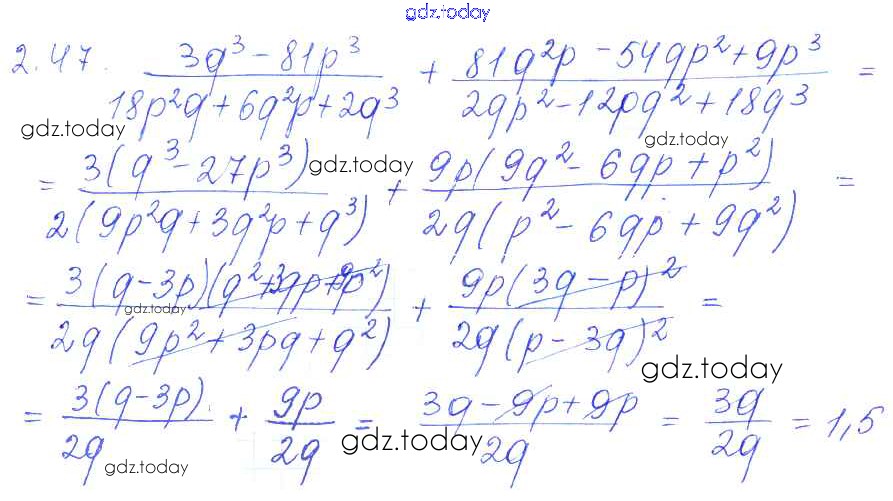 gdz.today
2.47. (3q³ - 81p³)/(18p²q + 6q²p + 2q³) + (81q²p - 54qp² + 9p³)/(2qp² - 12pq² + 18q³) =
gdz.today gdz.today
= 3(q³ - 27p³)/2(9p²q + 3q²p + q³) + 9p(9q² - 6qp + p²)/2q(p² - 6qp + 9q²) =
gdz.today
= 3(q - 3p)(q² + 3qp + 9p²)/2q(9p² + 3pq + q²) + 9p(3q - p)²/2q(p - 3q)² =
gdz.today gdz.today
= 3(q - 3p)/2q + 9p/2q = (3q - 9p + 9p)/2q = 3q/2q = 1,5
gdz.today gdz.today